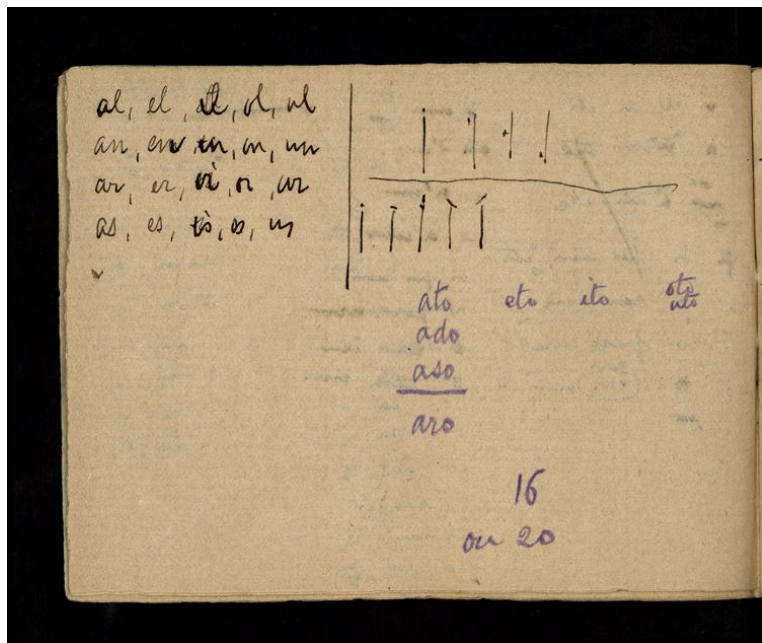 al, el, il, ol, ul
an, en, in, on, un
ar, er, ir, or, ur
as, es, is, os, us
ato eto ito oto
uto
ado
aso
aro
16
ou 20